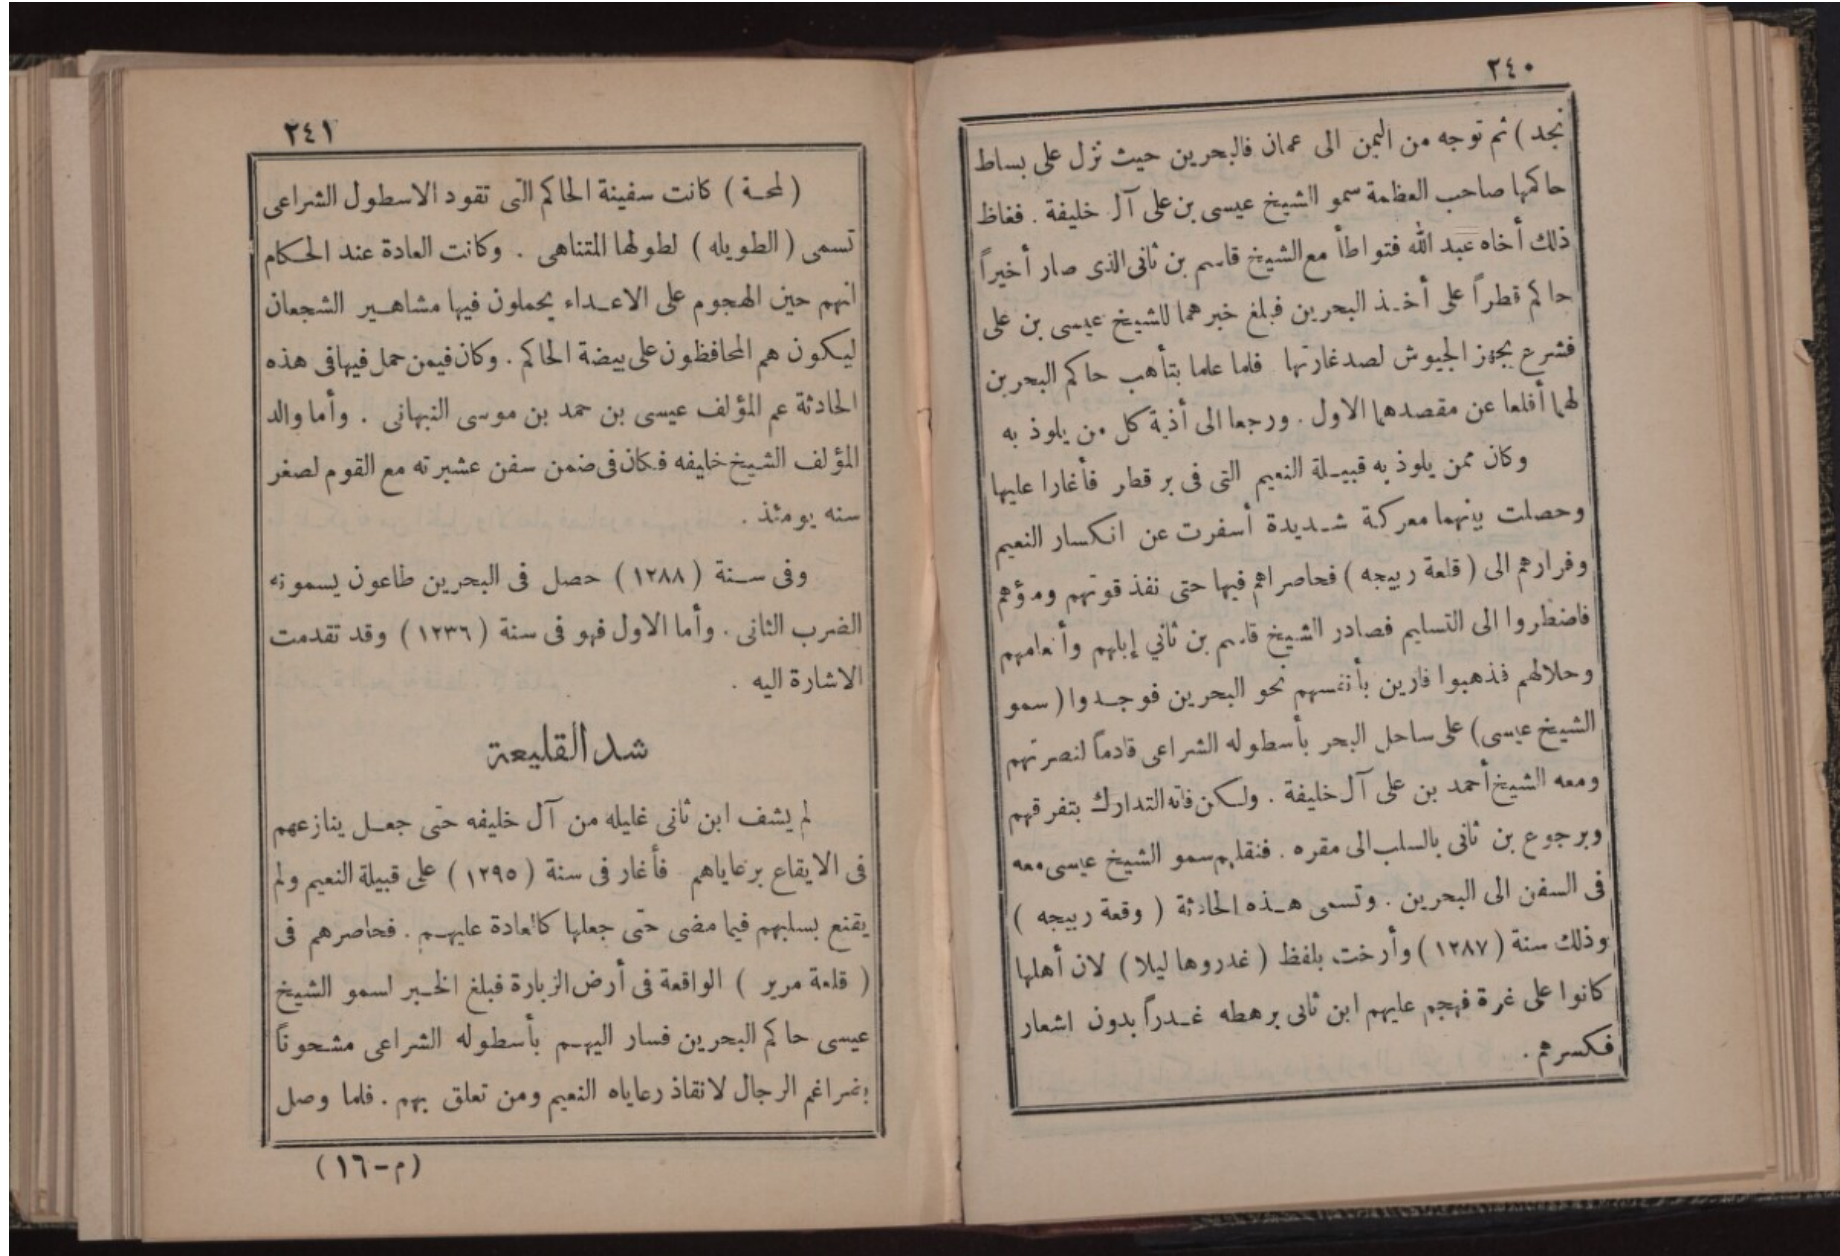 ٢٤٠
نجد) ثم توجه من اليمن الى عمان فالبحرين حيث نزل على بساط
حاكمها صاحب العظمة سمو الشيخ عيسى بن على آل خليفة . فغاظ
ذلك أخاه عبد الله فتواطأ مع الشيخ قاسم بن ثانى الذى صار أخيراً
حاكم قطراً على أخذ البحرين فبلغ خبرهما للشيخ عيسى بن على
فشرع يجهز الجيوش لصد غارتها فلما علما بتأهب حاكم البحرين
لهما أقلعا عن مقصدهما الاول . ورجعا الى أذية كل من يلوذ به
وكان ممن يلوذ به قبيلة النعيم التى فى بر قطار فأغارا عليها
وحصلت بينهما معركة شديدة أسفرت عن انكسار النعيم
وفرارهم الى (قلعة ربيجه) فحاصراهم فيها حتى نفذ قوتهم ومؤهم
فاضطروا الى التسليم فصادر الشيخ قاسم بن ثاني إبلهم وأنعامهم
وحلالهم فذهبوا فارين بأنفسهم نحو البحرين فوجدوا (سمو
الشيخ عيسى) على ساحل البحر بأسطوله الشراعى قادماً لنصرتهم
ومعه الشيخ أحمد بن على آل خليفة . ولكن فاته التدارك بتفرقهم
وبرجوع بن ثانى بالسلب الى مقره . فنقلهم سمو الشيخ عيسى معه
فى السفن الى البحرين . وتسمى هذه الحادثة ( وقعة ربيجه )
وذلك سنة (١٢٨٧) وأرخت بلفظ (غدروها ليلا) لان أهلها
كانوا على غرة فهجم عليهم ابن ثانى برهطه غدراً بدون اشعار
فكسرهم .
٢٤١
(لمحة) كانت سفينة الحاكم التى تقود الاسطول الشراعى
تسمى (الطويله) لطولها المتناهى . وكانت العادة عند الحكام
انهم حين الهجوم على الاعداء يحملون فيها مشاهير الشجعان
ليكون هم المحافظون على بيضة الحاكم . وكان فيمن حمل فيها فى هذه
الحادثة عم المؤلف عيسى بن حمد بن موسى النبهانى . وأما والد
المؤلف الشيخ خليفه فكان فى ضمن سفن عشيرته مع القوم لصغر
سنه يومئذ .
وفى سنة (١٢٨٨) حصل فى البحرين طاعون يسمونه
الضرب الثانى . وأما الاول فهو فى سنة (١٢٣٦) وقد تقدمت
الاشارة اليه .
شد القليعة
لم يشف ابن ثانى غليله من آل خليفه حتى جعل ينازعهم
فى الايقاع برعاياهم فأغار فى سنة (١٢٩٥) على قبيلة النعيم ولم
يقنع بسلبهم فيما مضى حتى جعلها كالعادة عليهم . فحاصرهم فى
( قلعة مرير ) الواقعة فى أرض الزبارة فبلغ الخبر لسمو الشيخ
عيسى حاكم البحرين فسار اليهم بأسطوله الشراعى مشحوناً
بضراغم الرجال لانقاذ رعاياه النعيم ومن تعلق بهم . فلما وصل
(م-١٦)